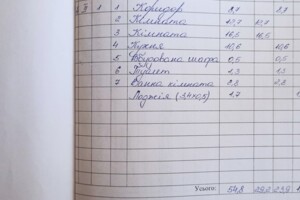 1 1 Коридор 8,7 8,7
2 Кімната 13,7 13,7
3 Кімната 16,5 16,5
4 Кухня 10,6 10,6
5 Вбудована шафа 0,5 0,5
6 Туалет 1,3 1,3
7 Ванна кімната 2,8 2,8
Лоджія 1,7
Усього: 54,8